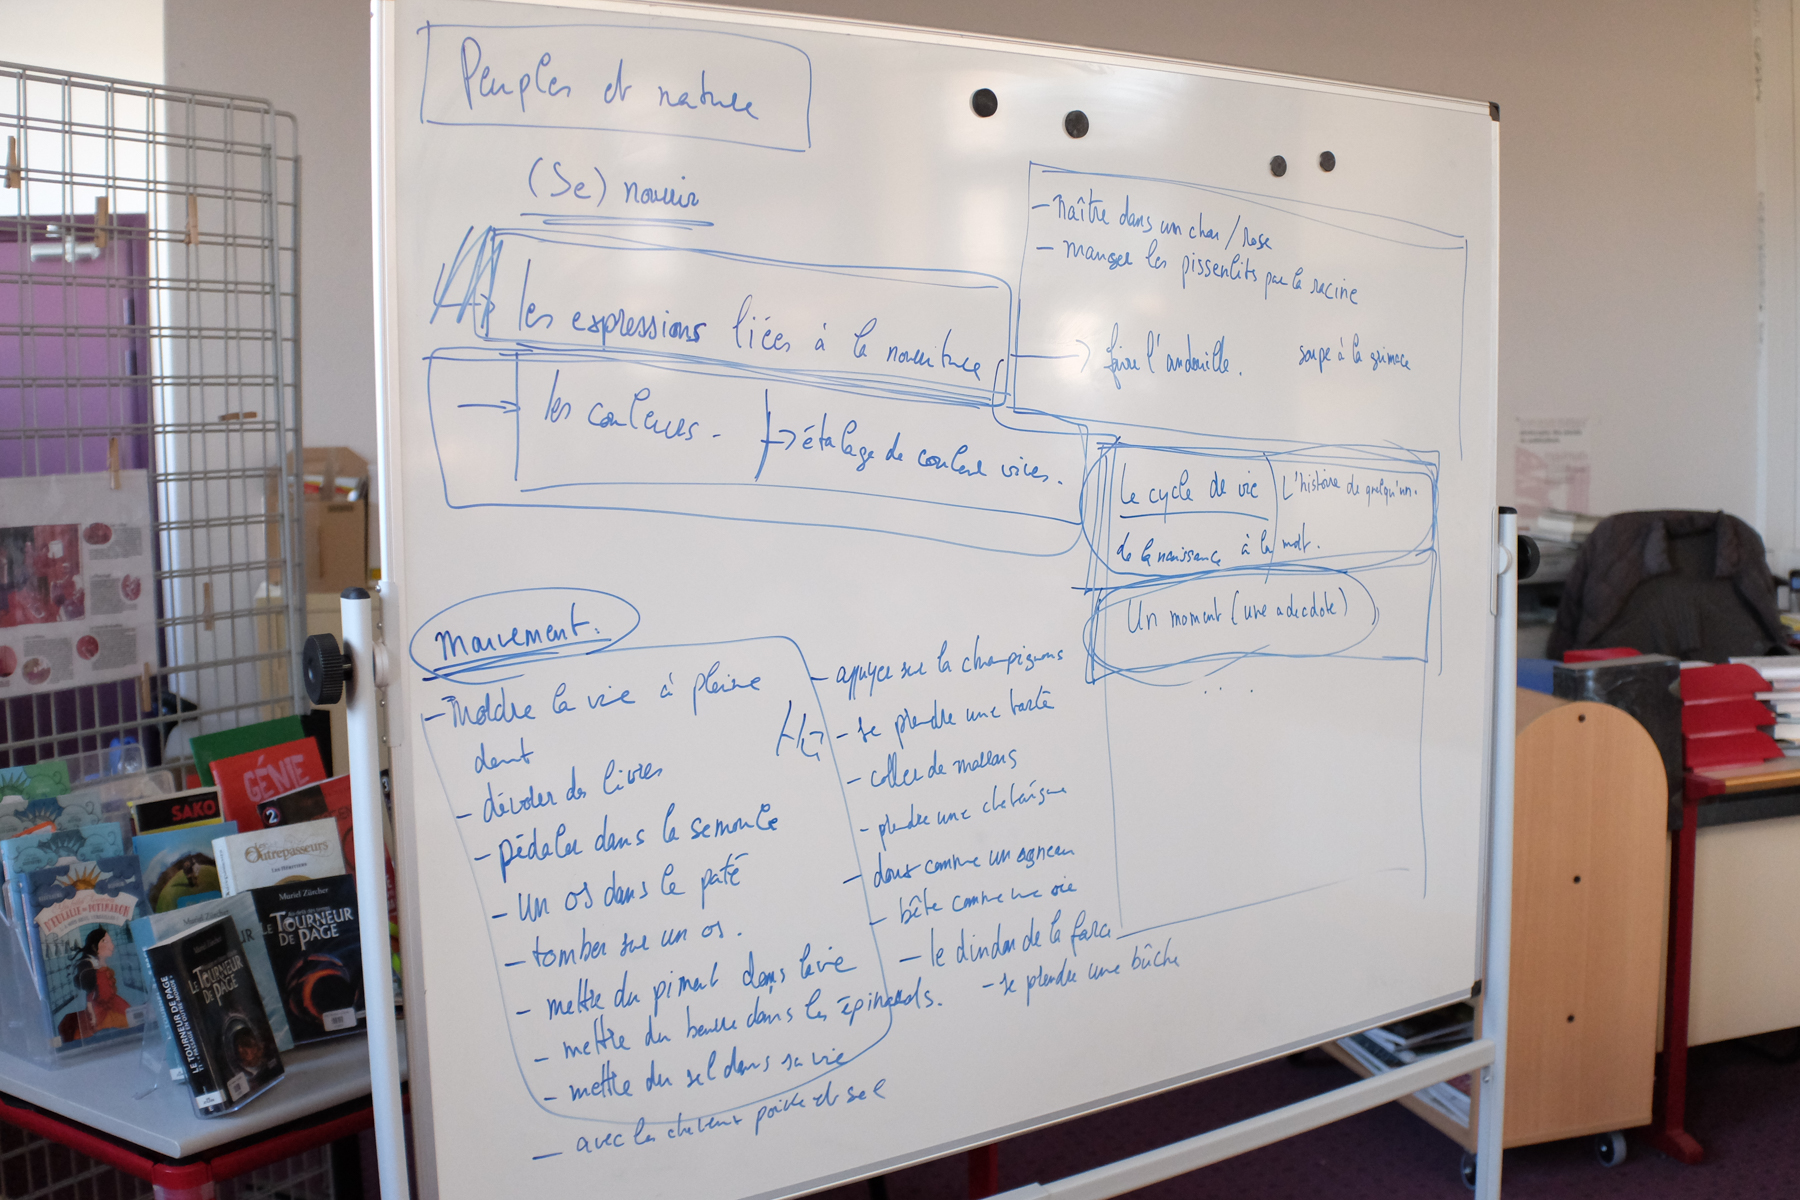 Peuples et nature
(Se) nourrir
→ les expressions liées à la nourriture
→ les couleurs. → étalage de couleur vives.
- naître dans un chou / rose
- manger les pissenlits par la racine
→ faire l'andouille. soupe à la grimace
Le cycle de vie
de la naissance à la mort.
L'histoire de quelqu'un.
Un moment (une anecdote)
...
Mouvement:
- Mordre la vie à pleine
dent
- dévorer des livres
- pédaler dans la semoule
- Un os dans le pâté
- tomber sur un os.
- mettre du piment dans la vie
- mettre du beurre dans les épinards.
- mettre du sel dans sa vie
- avec les cheveux poivre et sel
- appuyer sur la champignons
- se prendre une tarte
- coller de marrons
- prendre une châtaigne
- doux comme un agneau
- bête comme une oie
- le dindon de la farce
- se prendre une bûche
GÉNIE
SAKO
2
Outrepasseurs
Muriel Zürcher
LE TOURNEUR
DE PAGE
LE TOURNEUR
DE PAGE
LE TOURNEUR DE PAGE